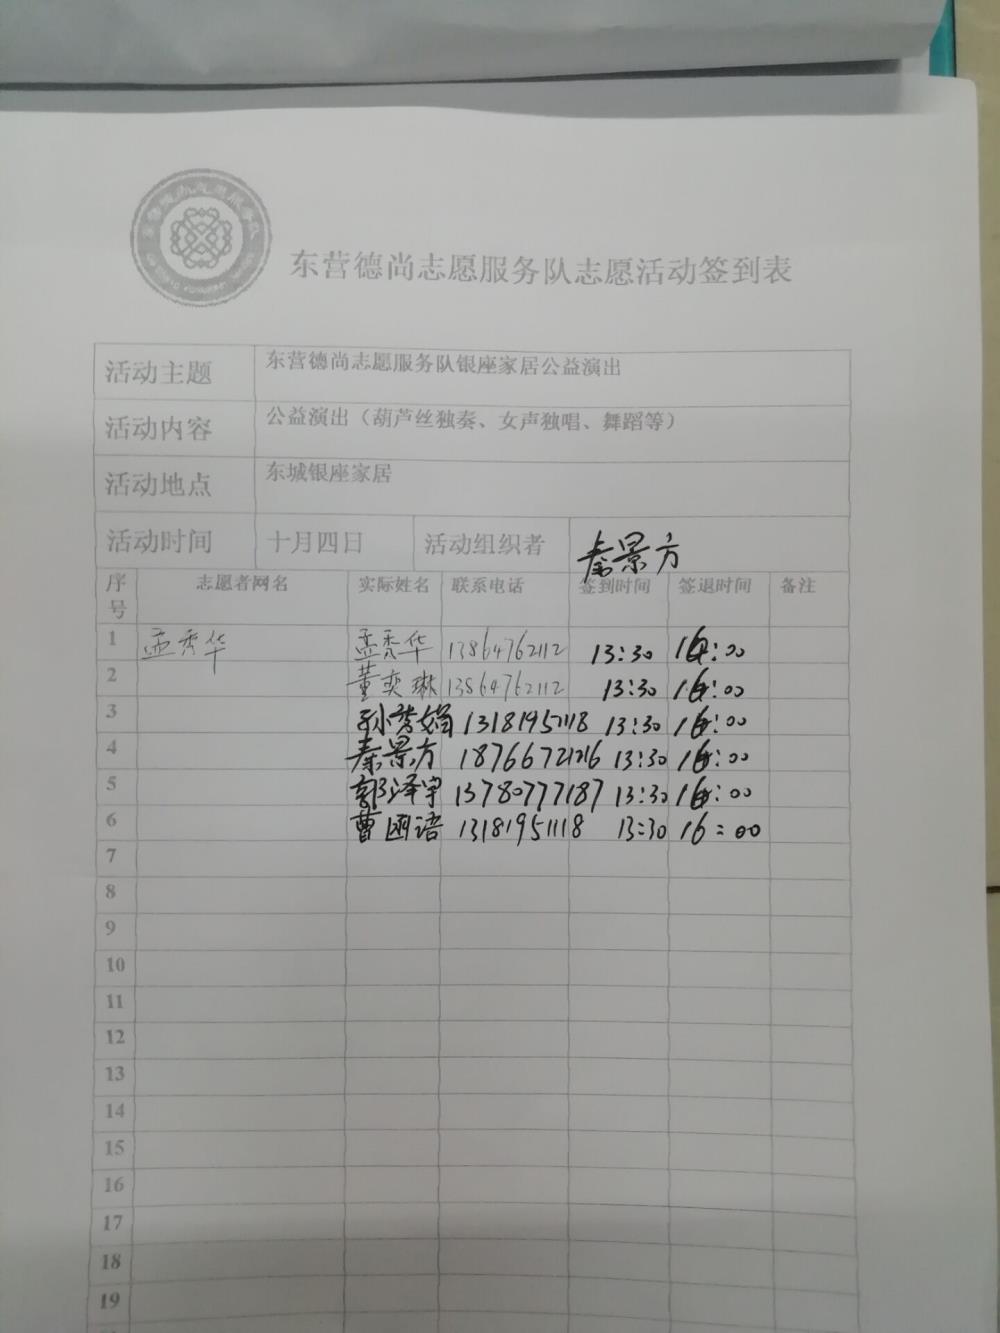 东营德尚志愿服务队志愿活动签到表
活动主题 东营德尚志愿服务队银座家居公益演出
活动内容 公益演出（葫芦丝独奏、女声独唱、舞蹈等）
活动地点 东城银座家居
活动时间 十月四日 活动组织者 秦景方
序号 志愿者网名 实际姓名 联系电话 签到时间 签退时间 备注
1 孟秀华 孟秀华 13864762112 13:30 16:00
2 董奕琳 13864762112 13:30 16:00
3 13181951118 13:30 16:00
4 秦景方 18766721216 13:30 16:00
5 郭泽宇 13780777187 13:30 16:00
6 曹函语 13181951118 13:30 16:00
7
8
9
10
11
12
13
14
15
16
17
18
19